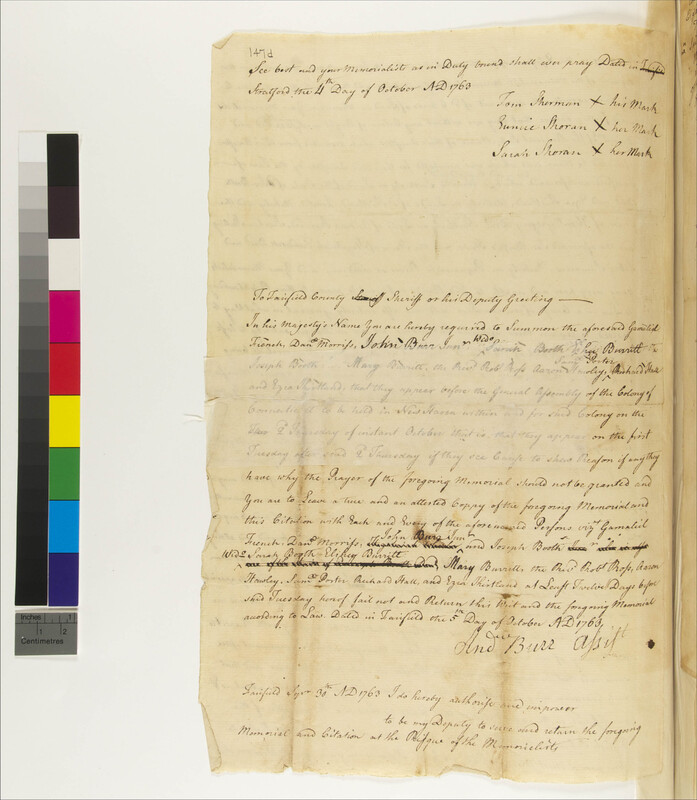 147d
See best and your Memorialists as in Duty bound shall ever pray Dated in
Stratford the 4th Day of October AD 1763
Tom Sherman X his Mark
Eunice Shoran X her Mark
Sarah Shoran X her Mark
To Fairfield County Sheriff or his Deputy Greeting —
In his Majesty's Name You are hereby required to Summon the aforesaid Gamaliel
French, Danll Morriss, John Burr Junr Widw Sarah Booth Burritt
Joseph Booth Mary Burritt, the Revd Robt Ross Aaron Hawley, Samll Porter Richard Hall
and Ezra Kirtland, that they appear before the General Assembly of the Colony of
Connecticut to be held in New Haven within and for said Colony on the
2d Thursday of instant October that is, that they appear on the first
Tuesday after said 2d Thursday if they see Cause to shew Reason if any they
have why the Prayer of the foregoing Memorial should not be granted and
You are to Leave a true and an attested Coppy of the foregoing Memorial and
this Citation with Each and Every of the aforenamed Persons viz Gamaliel
French, Danll Morriss, John Burr Junr and Joseph Booth
Widw Sarah Booth Burritt Mary Burritt, the Revd Robt Ross, Aaron
Hawley, Samll Porter Richard Hall, and Ezra Kirtland at Least Twelve Days before
said Tuesday hereof fail not and Return this Writ and the foregoing Memorial
according to Law Dated in Fairfield the 5th Day of October AD 1763
Andw Burr Assist
Fairfield 30th AD 1763 I do hereby authorise and impower
to be my Deputy to serve and return the foregoing
Memorial and Citation at the Risque of the Memorialists
Inches 1 2
Centimetres